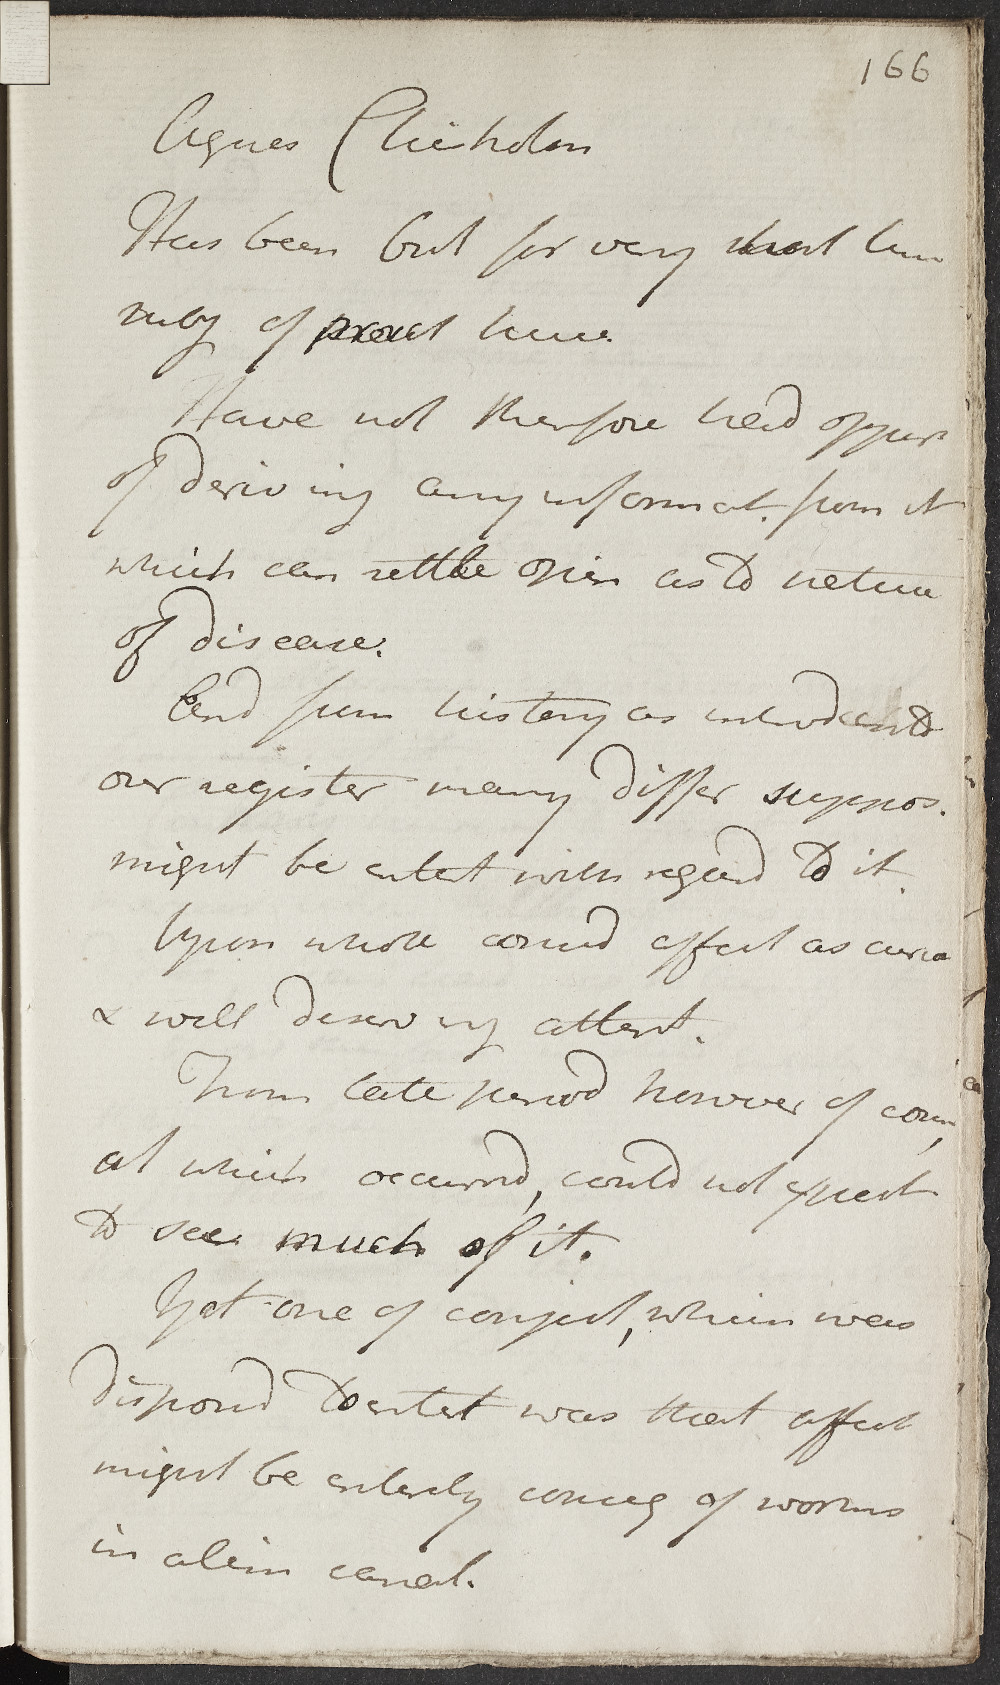 166
Agnes Chisholm
Has been but for very short time
subj of pract here.
Have not therefore had oppur
of deriving any informat. from it
which can settle opin as to nature
of disease.
And from history as introduced to
our register many differ suppos.
might be entert with regard to it.
Upon whole consid affect as curio
& well deserving attent.
From late period however of cour,
at which occurred, could not expect
to see much of it.
Yet one of conject, which was
disposed to entert was that affect
might be entirely conseq of worms
in alim canal.